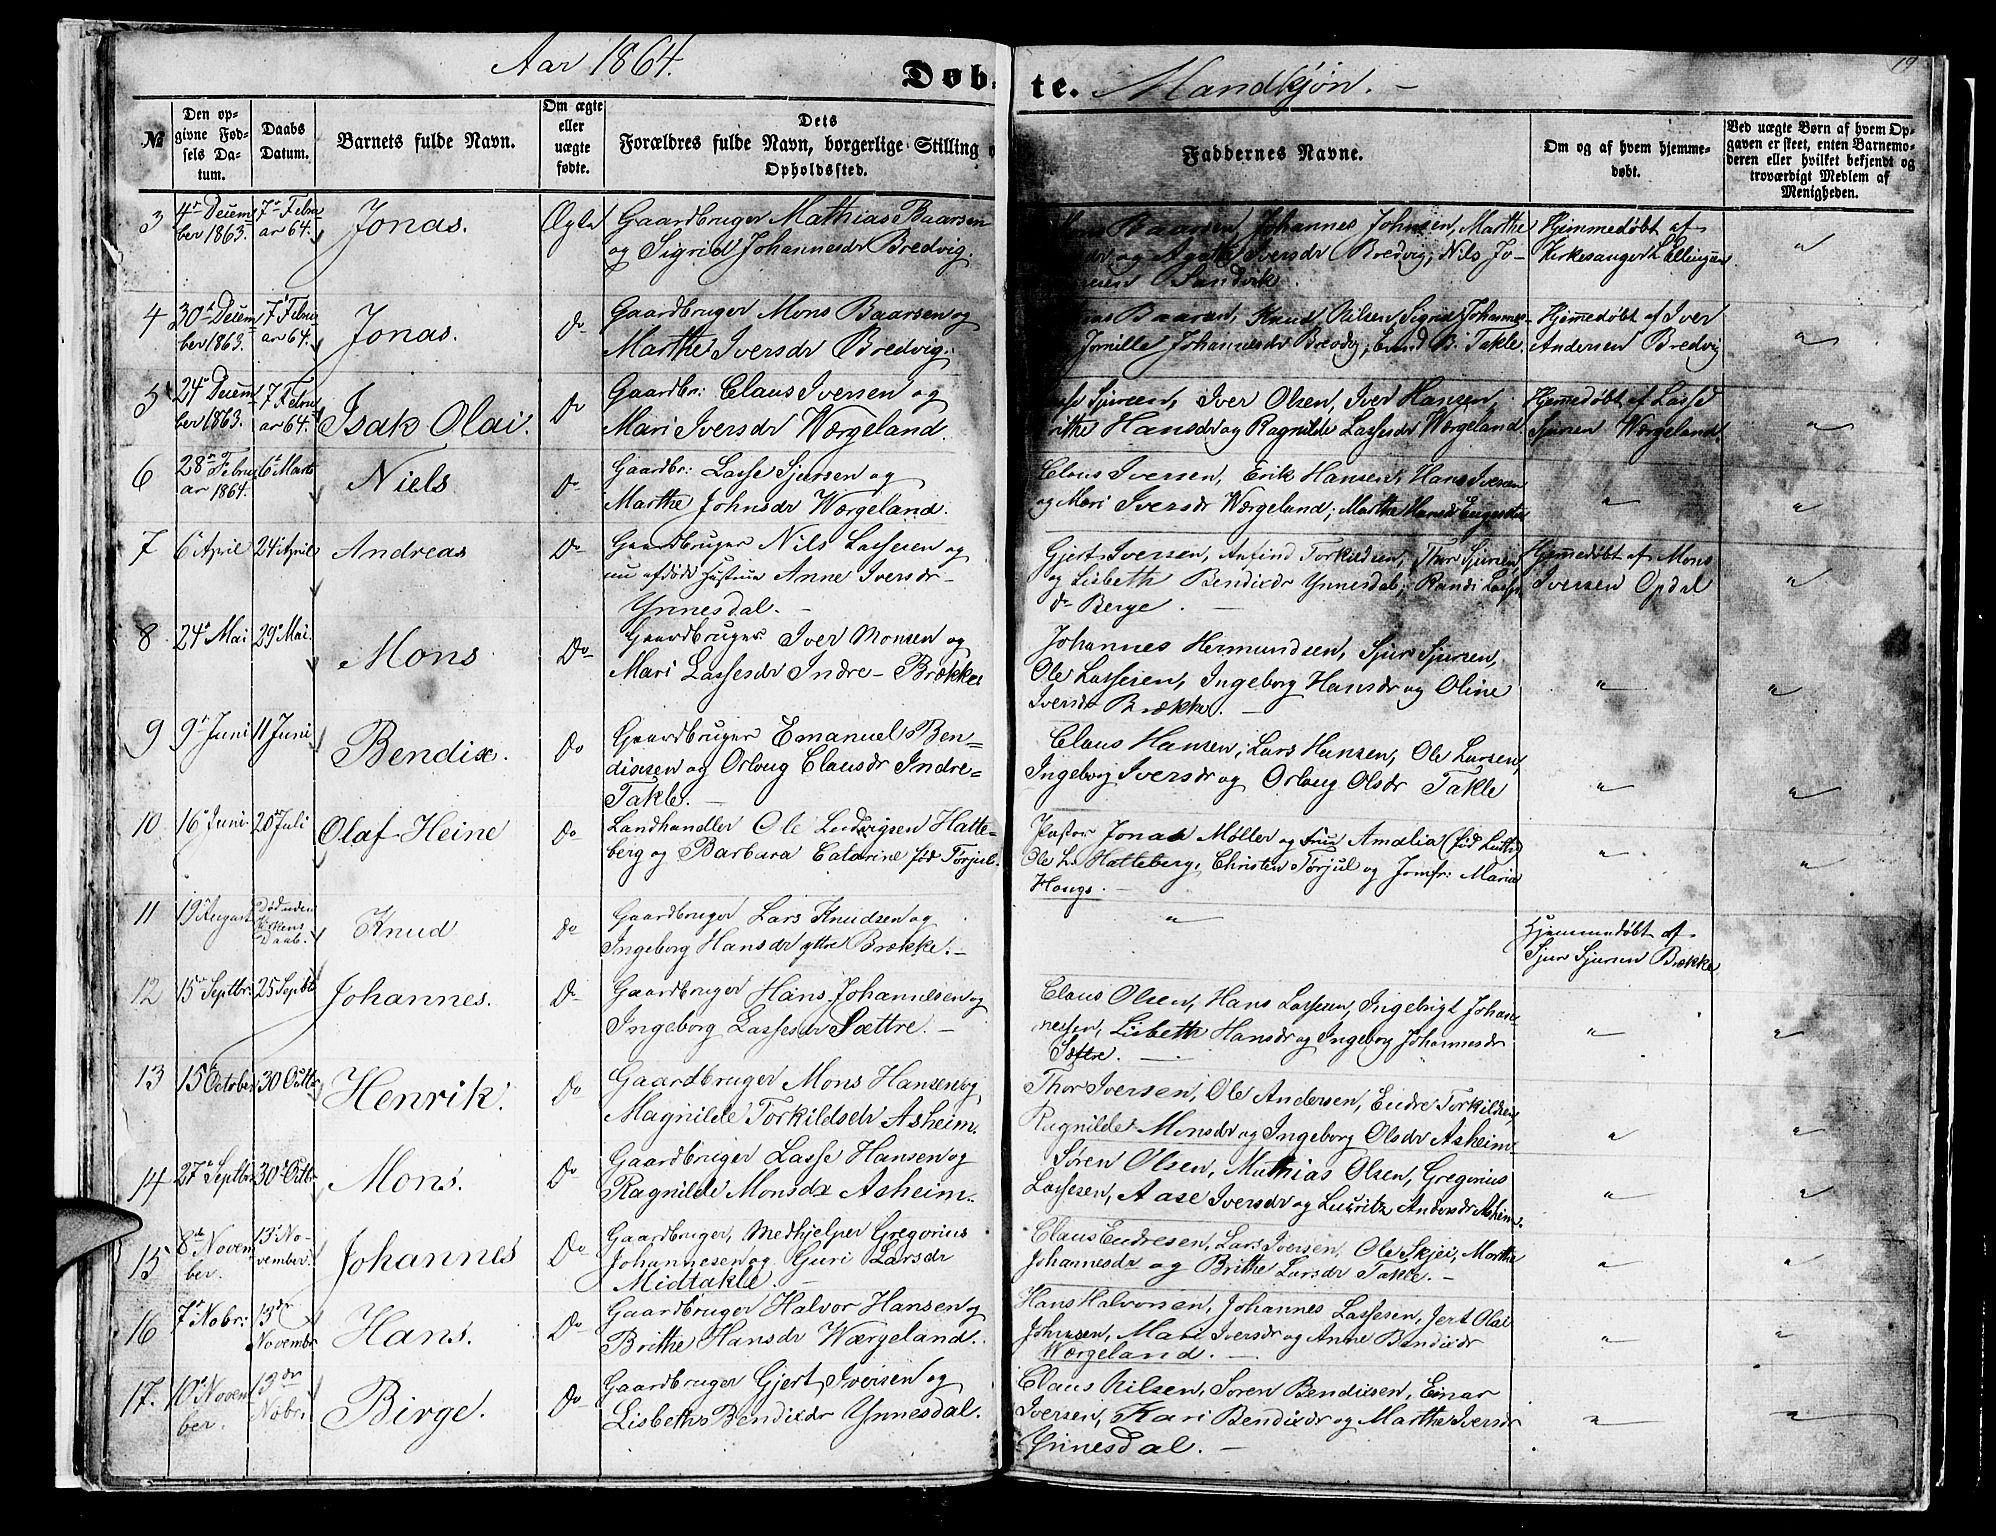 Aar 1864.
Døb-
te. Mandkjøn. -
19
№
Den op-
givne Fød-
sels Da-
tum.
Daabs
Datum.
Barnets fulde Navn.
Om ægte
eller
uægte
fødte.
Dets
Forældres fulde Navn, borgerlige Stilling o
Opholdssted.
Faddernes Navne.
Om og af hvem hjemme-
døbt.
Ved uægte Børn af hvem Op-
gaven er skeet, enten Barnemo-
deren eller hvilket bekjendt og
troværdigt Medlem af
Menigheden.
3
4de Decem
ber 1863.
7de Febru
ar 64.
Jonas.
Ægte
Gaardbruger Mathias Baarsen
og Sigrid Johannesdr Bredvig.
Baarsen, Johannes Johnsen, Marthe
og Agathe Iversdr Bredvig, Nils Jo-
Sandvik.
Hjemmedøbt af
Kirkesanger Ellingsen
"
4
30te Decem
ber 1863.
7de Febru
ar 64.
Jonas.
Do
Gaardbruger Mons Baarsen og
Marthe Iversdr Bredvig.
Baarsen, Knud Nilsen, Sigrid Johannes-
Jornille Johannesdr Bredvig, B. Takle.
Hjemmedøbt af Iver
Andersen Bredvig
"
5
24de Decem
ber 1863.
7 Febru
ar 64.
Isak Olai.
Do
Gaardbr: Claus Iversen og
Mari Iversdr Værgeland.
Sjursen, Iver Olsen, Iver Hansen,
Hansdr og Ragnilde Lassesdr Værgeland
Hjemmedøbt af Lasse
Sjursen Værgeland.
"
6
28de Febru
ar 1864.
6te Marts
Niels
Do
Gaardbr: Lasse Sjursen og
Marthe Johnsdr Værgeland.
Claus Iversen, Erik Hansen, Hans Iversen
og Mari Iversdr Værgeland; Marthe Hansdr
"
"
7
6te April
24de April
Andreas
Do
Gaardbruger Nils Lassesen og
nu afdøde Hustrue Anne Iversdr -
Ynnesdal. -
Gjert Iversen, Anfind Torkildsen, Thor Sjursen
og Lisbeth Bendixdr Ynnesdal; Randi Lasses
dr Berge. -
Hjemmedøbt af Mons
Iversen Opdal
"
8
24de Mai
29de Mai.
Mons
Do
Gaardbruger Iver Monsen og
Mari Lassesdr Indre-Brække
Johannes Hermundsen, Sjur Sjursen,
Ole Lassesen, Ingeborg Hansdr og Oline
Iversdr Brække. -
"
"
9
9de Juni
11 Juni
Bendix.
Do
Gaardbruger Emanuel Ben=
dixsen og Orloug Clausdr Indre=
Takle. -
Claus Hansen, Lars Hansen, Ole Larsen,
Ingeborg Iversdr og Orloug Olsdr Takle
"
"
10
16de Juni
20de Juli
Olaf Heine
Do
Landhandler Ole Ludvigsen Hatte-
berg og Barbara Catarine fød Torjul.
Pastor Jonas Møller og Frue Amalia (fød
Ole L. Hatteberg, Christen Torjul og Jomfr: Maria
Hougs. -
"
"
11
19de August
Død uden
Kirkens
Daab.
Knud
Do
Gaardbruger Lars Knudsen og
Ingeborg Hansdr ytre Brække. -
"
Hjemmedøbt af
Sjur Sjursen Brække
12
15de Septbr:
25 Septbr
Johannes.
Do
Gaardbruger Hans Johannesen og
Ingeborg Lassesdr Sættre. -
Claus Olsen, Hans Lassesen, Ingebrigt Johan-
nessen, Lisbeth Hansdr og Ingeborg Johannesdr
Sættre. -
"
"
13
15 October
30 Octbr
Henrik.
Do
Gaardbruger Mons Hansen og
Magnilde Torkildsdr Asheim.
Thor Iversen, Ole Andersen, Endre Torkildsen,
Ragnilde Monsdr og Ingeborg Olsdr Asheim.
"
"
14
27de Septbr
30de Octbr
Mons.
Do
Gaardbruger Lasse Hansen og
Ragnilde Monsdr Asheim.
Søren Olsen, Mathias Olsen, Gregorius
Lassesen, Aase Iversdr og Lauritz Andersdr Asheim.
"
"
15
8de Novem
ber.
13de No-
vember.
Johannes
Do
Gaardbruger, Medhjelper Gregorius
Johannesen og Guri Larsdr
Midtakle. -
Claus Endresen, Lars Iversen, Ole Skjei, Marthe
Johannesdr og Brithe Larsdr Takle. -
"
"
16
7de Nobr:
13de
Novembr
Hans.
Do
Gaardbruger Halvor Hansen og
Brithe Hansdr Værgeland.
Hans Halvorsen, Johannes Lassesen, Jert Olai
Johnsen, Mari Iversdr og Anne Bendixdr
Værgeland. -
"
"
17.
10de Novem
ber.
13de
Nobr.
Birge.
Do
Gaardbruger Gjert Iversen og
Lisbeth Bendixdr Ynnesdal.
Claus Nilsen, Søren Bendixen, Einar
Iversen, Kari Bendixdr og Marthe Iversdr
Ynnesdal. -
"
"